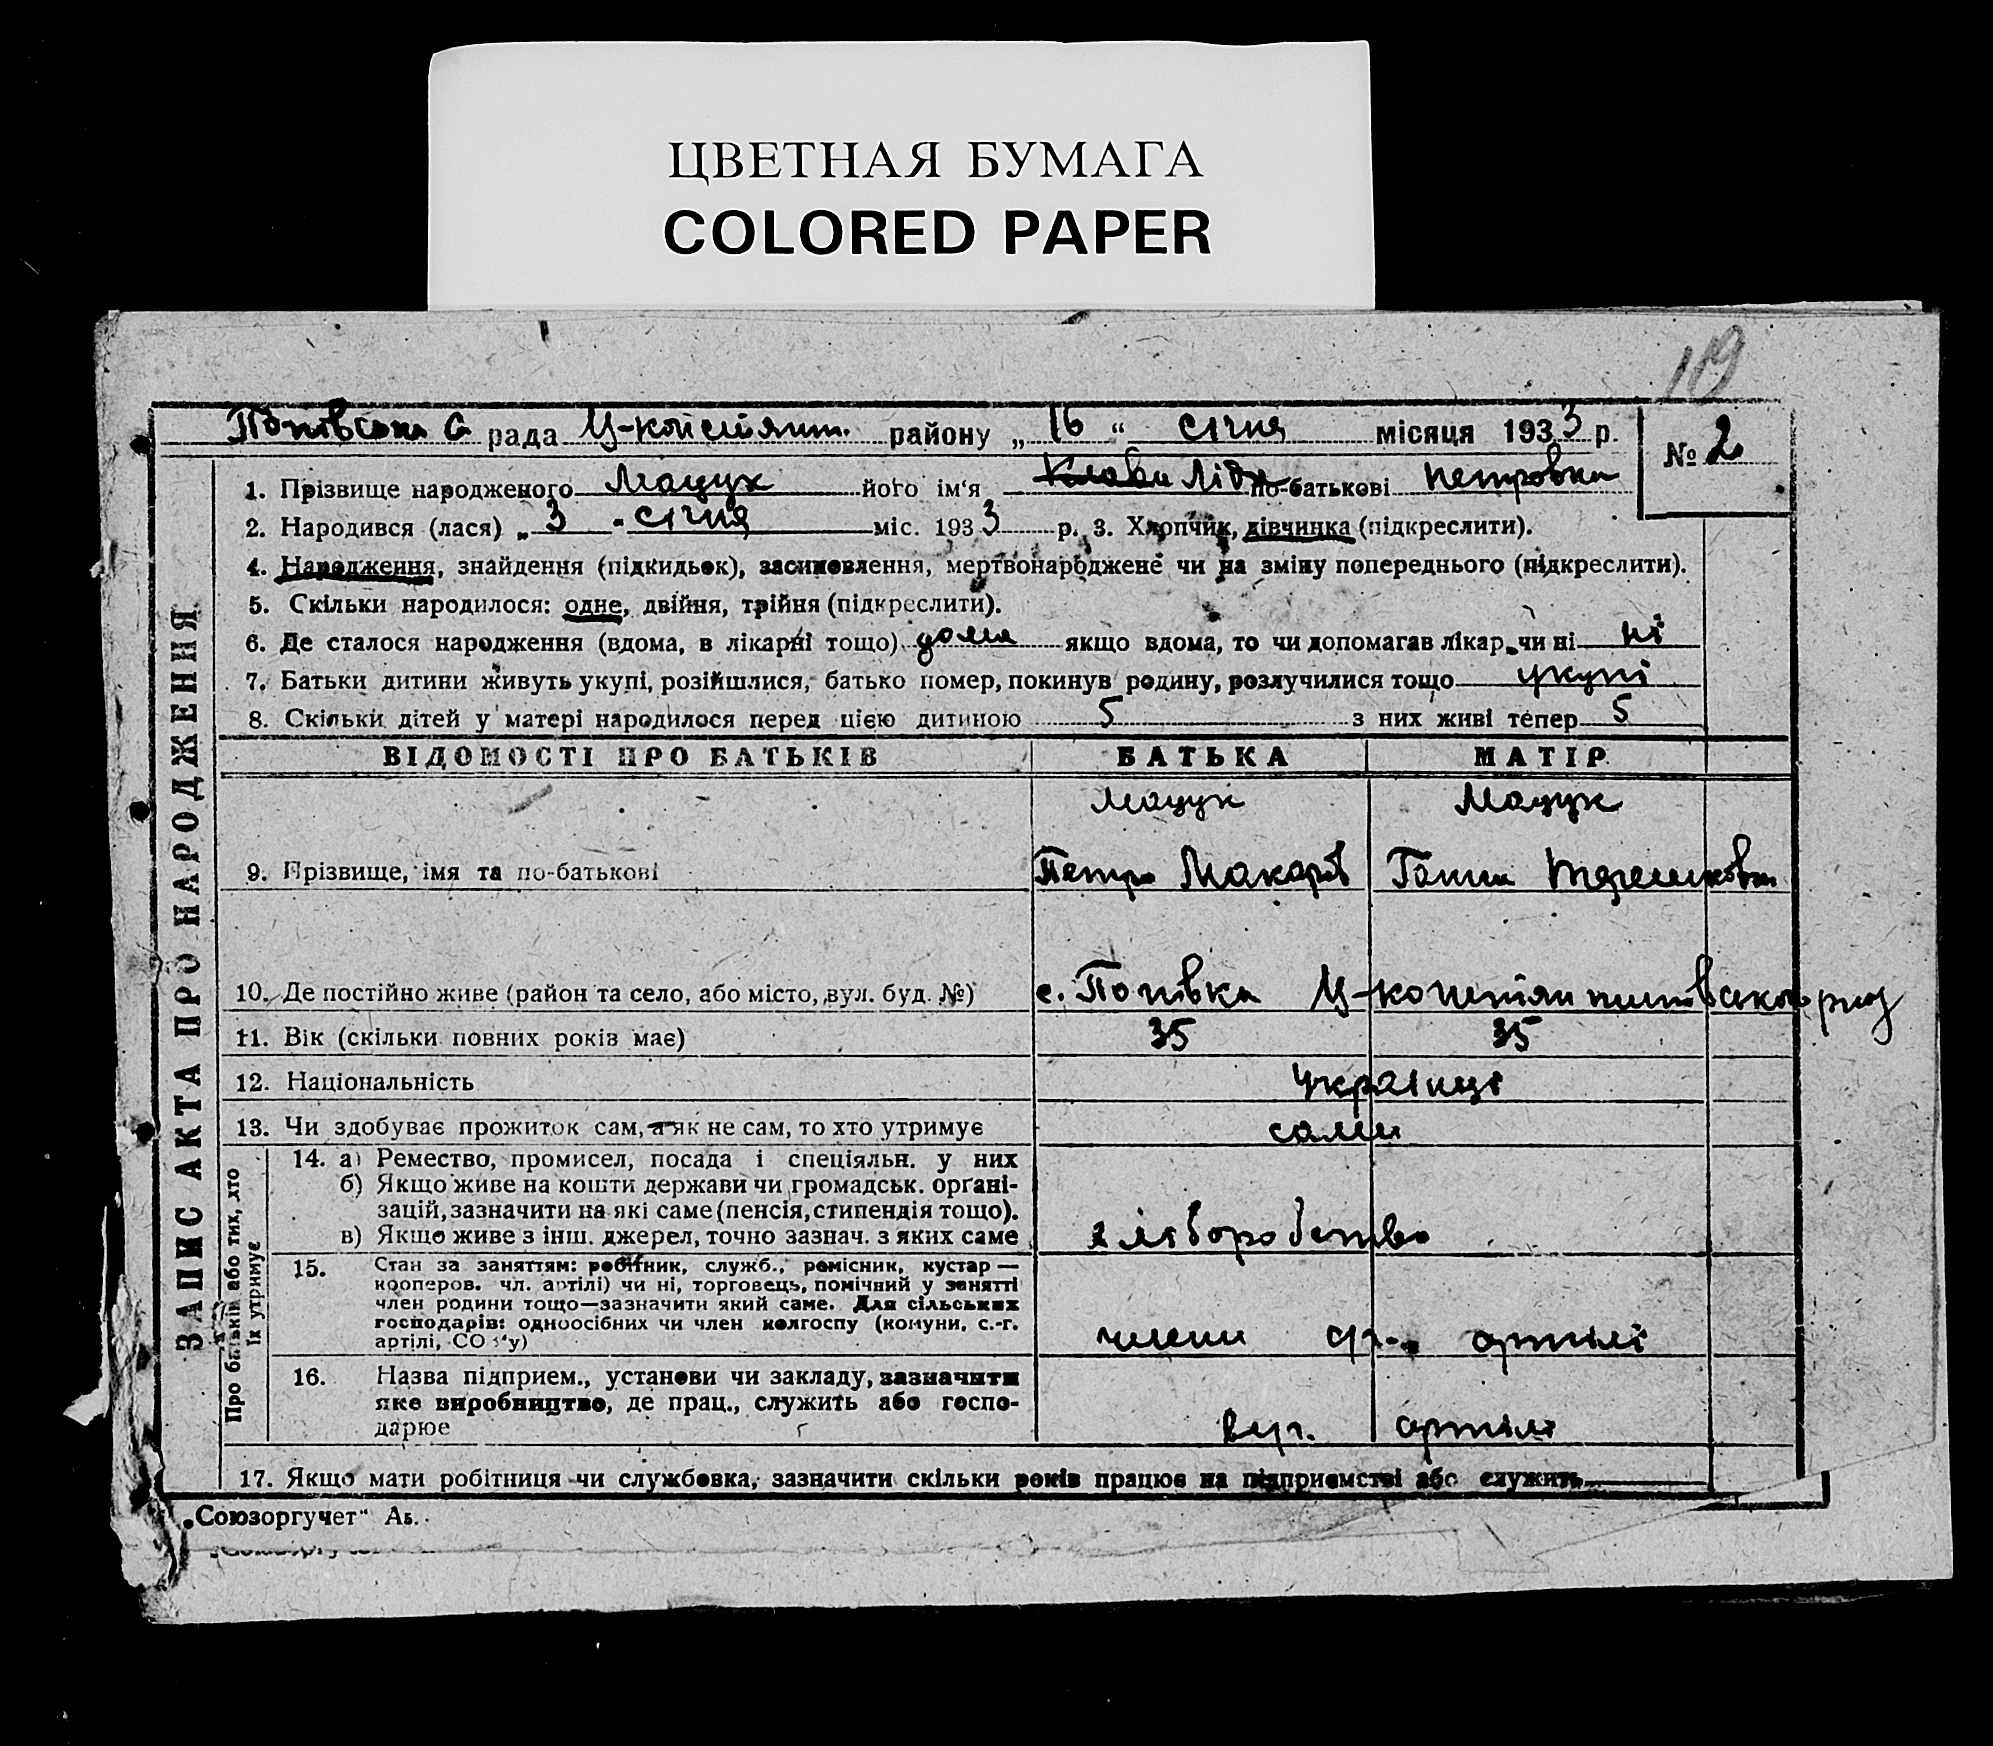 ЦВЕТНАЯ БУМАГА
COLORED PAPER
119
Попівська с рада Ц-констянт. району „16“ січня місяця 1933 р. № 2
1. Прізвище народженого Мацук його ім‘я Клава Ліда по-батькові Петровна
2. Народився (лася) „3“ січня міс. 1933 р. 3. Хлопчик, дівчинка (підкреслити).
4. Народження, знайдення (підкидьок), засиновлення, мертвонароджене чи на зміну попереднього (підкреслити).
5. Скільки народилося: одне, двійня, трійня (підкреслити).
6. Де сталося народження (вдома, в лікарні тощо) дома якщо вдома, то чи допомагав лікар чи ні ні
7. Батьки дитини живуть укупі, розійшлися, батько помер, покинув родину, розлучилися тощо укупі
8. Скільки дітей у матері народилося перед цією дитиною 5 з них живі тепер 5
ВІДОМОСТІ ПРО БАТЬКІВ БАТЬКА МАТІР
Мацук Мацук
9. Прізвище, імя та по-батькові Петро Макарів Ганна Терешковна
10. Де постійно живе (район та село, або місто, вул. буд. №) с. Попівка Ц-констянтиновського р
11. Вік (скільки повних років має) 35 35
12. Національність Українці
13. Чи здобуває прожиток сам, а як не сам, то хто утримує сами
14. а) Ремество, промисел, посада і спеціяльн. у них
б) Якщо живе на кошти держави чи громадськ. органі-
зацій, зазначити на які саме (пенсія, стипендія тощо).
в) Якщо живе з інш. джерел, точно зазнач. з яких саме хліборобство
15. Стан за заняттям: робітник, служб., ремісник, кустар —
кооперов. чл. артілі) чи ні, торговець, помічний у занятті
член родини тощо—зазначити який саме. Для сільських
господарів: одноосібних чи член колгоспу (комуни, с.-г.
артілі, СО у) члени артілі
16. Назва підприєм., установи чи закладу, зазначити
яке виробництво, де прац., служить або госпо-
дарює артілі
17. Якщо мати робітниця чи службовка, зазначити скільки років працює на підприємстві або служить
ЗАПИС АКТА ПРО НАРОДЖЕННЯ
Про батьків або тих, хто
їх утримує
„Союзоргучет“